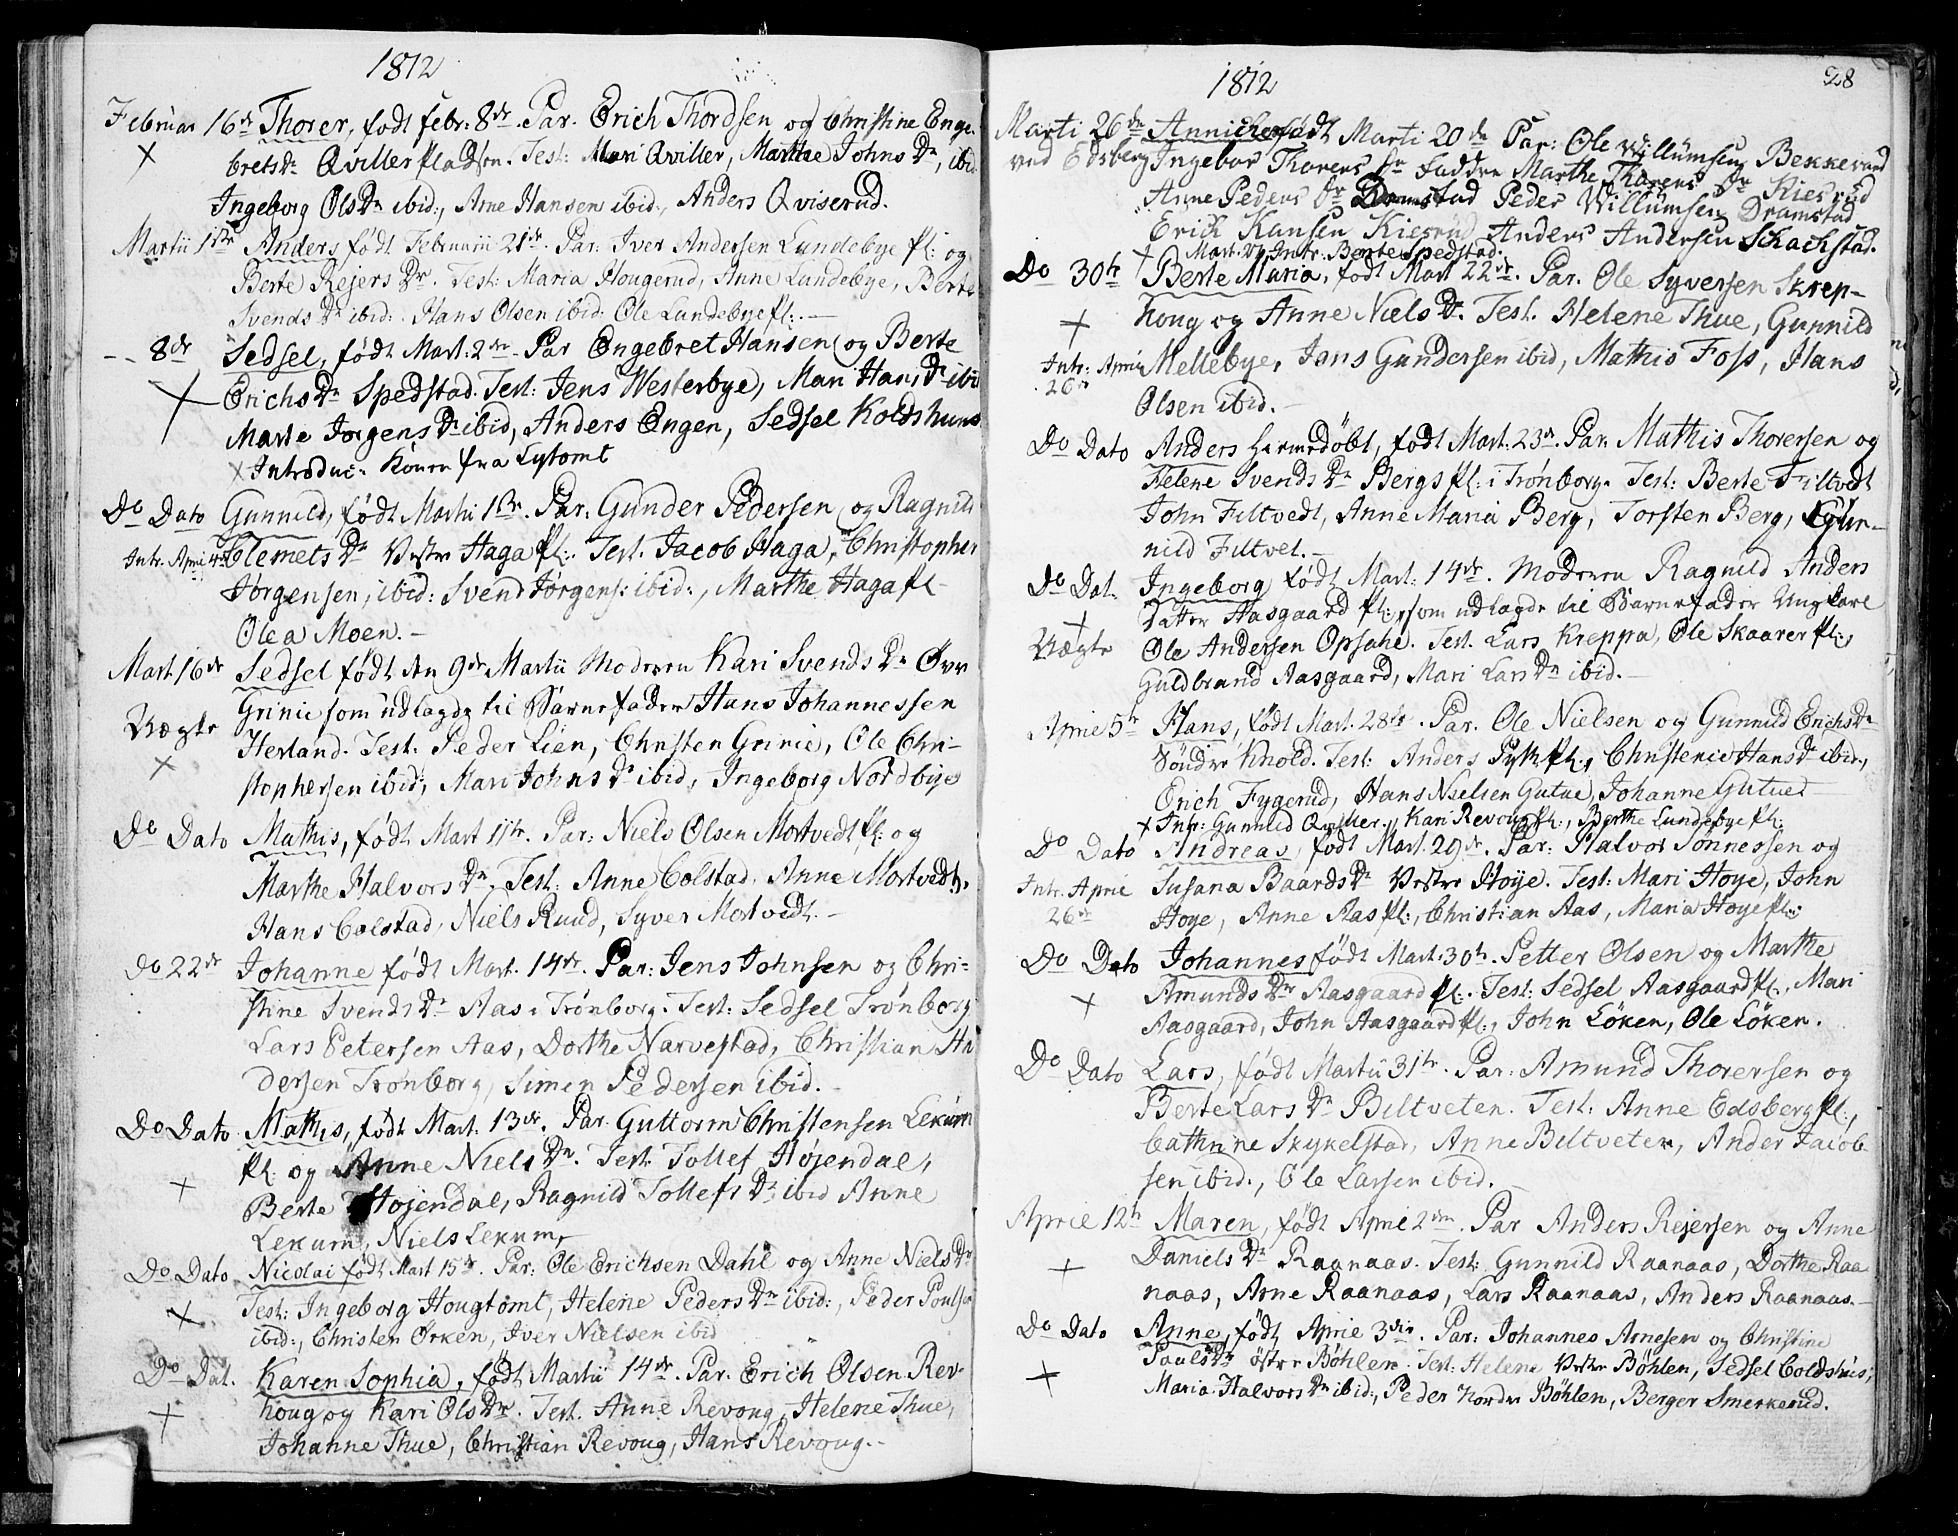 1812
Februar 16de Thorer, født febr: 8de. Par. Erich Thordsen og Christine Enge-
X bretsDr Qviller Pladsen. Test: Mari Qviller, Marthe JohnsDr, ibid
Ingeborg OlsDr ibid:, Arne Hansen ibid:, Anders Qviserud.
Martii 1ste Anders født Februarii 21de. Par: Iver Andersen Lundebye Pl: og
Berte RejersDr. Test: Maria Hougerud, Anne Lundebye, Berte
SvendsDr ibid: Hans Olsen ibid: Ole Lundebye pl:. —
- - 8de Sedsel, født Mart: 2den. Par Engebret Hansen og Berte
X ErichsDr Spedstad. Test: Jens Westerbye, Mari HansDr ibid
Marte JorgensDr ibid, Anders Engen, Sedsel Koldshuus
X Introduc: Konen fra Lytomt
Do Dato Gunnild, født Martii 1ste. Par: Gunder Pedersen og Ragnild
Intr. April 4de ClemetsDr Vestre Haga Pl:. Test. Jacob Haga, Christopher
Jørgensen, ibid: Svend Jørgens: ibid:, Marthe Haga pl
Olea Moen. —
Mart. 16de Sedsel født den 9de Martii Moderen Kari SvendsDr Øvr
Grinie som udlagde til Barnefader Hans Johannessen
Uægte Herland. Test: Peder Lien, Christen Grinie, Ole Chri-
X stophersen ibid:, Mari JohnsDr ibid, Ingeborg Nordbye
Do Dato Mathis, født Mart 11te. Par: Niels Olsen Mortvedt pl: og
Marthe HalvorsDr. Test: Anne Colstad. Anne Mortvedt,
Hans Colstad, Niels Ruud, Syver Mortvedt. —
do 22de Johanne født Mart. 14de. Par: Jens Johnsen og Chri=
stine SvendsDr Aas i Trønborg. Test: Sedsel Trønborg
Lars Petersen Aas, Dorthe Narvestad, Christian An
dersen Trønborg, Simen Pedersen ibid. —
Do Dato. Mathis, født Mart. 13de. Par Guttorm Christensen Lekum
pl: og Anne NielsDr. Test. Tollef Højendal,
X Berte Højendal, Ragnild TollefsDr ibid Anne
Lekum, Niels Lekum,
Do Dato Nicolai født Mart 15de. Par: Ole Erichsen Dahl og Anne NielsDr
X Test: Ingeborg Hougtomt, Helene PedersDr ibid:, Peder Poulsen
ibid:, Christen Ørken, Iver Nielsen ibid
Do Dat. Karen Sophia, født Martii 14de. Par. Erich Olsen Rev-
X houg og Kari OlsDr. Test. Anne Revoug, Helene Thue,
Johanne Thue, Christian Revoug, Hans Revoug. -
1812
28
Marti 26de Anniche født Marti 20de Par: Ole Willumsen Bekkevand
ved Edsberg Ingebor Thorens Dr Faddre Marthe Thorens Dr Kiesrud
Anne Peders Dr Dramstad Peder Willumsen Dramstad
Erich Hansen Kiesrud Anders Andersen Schackstad.
X Mart. 29 Intr: Berte Spedstad.
Do 30te Berte Maria, født Mart 22de. Par. Ole Syversen Skrep-
X houg og Anne NielsDr. Test. Helene Thue, Gunnild
Intr: April 26de Mellebye, Jens Gundersen ibid, Mathis Foss, Hans
Olsen ibid. —
Do Dato Anders hiemedöbt, født Mart. 23de. Par. Mathis Thorersen og
Helene SvendsDr Bergs pl: i Trønborg. Test: Berte Filtvedt
John Filtvedt, Anne Maria Berg, Torsten Berg, Gun-
nild Filtvet. —
Do Dat. Ingeborg født Mart: 14de. Moderen Ragnild Anders
X Datter Aasgaard pl:, som udlagde til Barnefader Ungkarl
Uægte Ole Andersen Opsahl. Test. Lars Kreppa, Ole Skaarer pl:,
Guldbrand Aasgaard, Mari LarsDr ibid. —
April 5te Hans, født Mart. 28de. Par. Ole Nielsen og Gunnild ErichsDr
Søndre Knold. Test: Anders Pytt pl:, Christenie HansDr ibid:,
Erich Fygerud, Hans Nielsen Gutue, Johanne Gutue
X Intr: Gunnild Qviller. Kari Revoug pl:, Berthe Lundebye pl:
Do Dato Andreas, født Mart. 29de. Par: Halvor Tonnessen og
Intr. April 26de Susana BaardsDr Vestre Hoye. Test: Mari Hoye, John
Hoye, Anne Aas pl:, Christian Aas, Maria Hoye pl:.
Do Dato Johannes født Mart: 30te. Petter Olsen og Marthe
X AmundsDr Aasgaard pl:. Test: Sedsel Aasgaard pl:, Mari
Aasgaard, John Aasgaard pl:, John Løken, Ole Løken.
Do Dato Lars, født Martii 31te. Par: Amund Thorersen og
Berte LarsDr Biltveten. Test: Anne Edsberg pl:,
Cathrine Skykelstad, Anne Biltveten, Ander Jacob-
sen ibid., Ole Larsen ibid. —
April 12te Maren, født April 2den. Par Anders Rejersen og Anne
X DanielsDr Raanaas. Test: Gunnild Raanaas, Dorthe Raa
naas, Arne Raanaas, Lars Raanaas, Anders Raanaas. —
Do Dato Anne, født April 3die. Par: Johannes Arnesen og Christine
X PaulsDr østre Bøhler. Test: Helene Vestre Bøhlen, Sedsel Coldshuus,
Maria HalvorsDr ibid:, Peder Nordre Bøhlen, Berger Smerkerud.